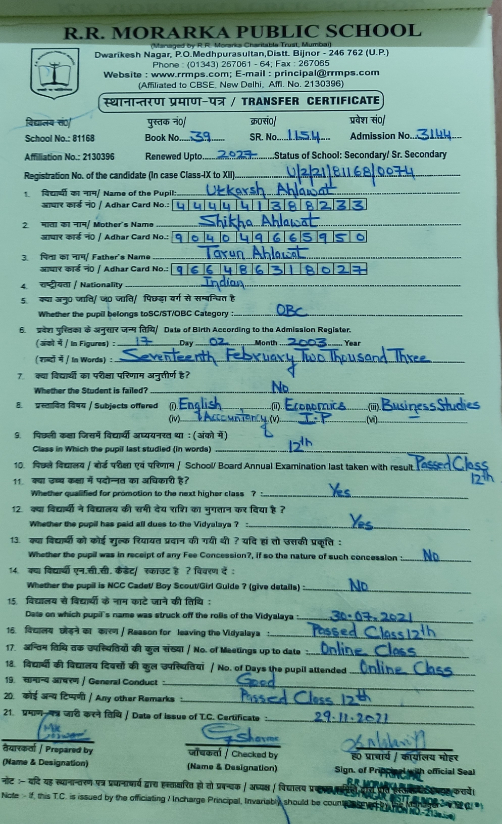 R.R. MORARKA PUBLIC SCHOOL
(Managed by R.R. Morarka Charitable Trust, Mumbai)
Dwarikesh Nagar, P.O.Medhpurasultan,Distt. Bijnor - 246 762 (U.P.)
Phone : (01343) 267061 - 64; Fax : 267065
Website : www.rrmps.com; E-mail : principal@rrmps.com
(Affiliated to CBSE, New Delhi, Affi. No. 2130396)
स्थानान्तरण प्रमाण-पत्र / TRANSFER CERTIFICATE
विद्यालय सं०/ पुस्तक नं०/ क्र०सं०/ प्रवेश सं०/
School No.: 81168 Book No. 39 SR. No. 1154 Admission No. 3144
Affiliation No.: 2130396 Renewed Upto 2027 Status of School: Secondary/ Sr. Secondary
Registration No. of the candidate (In case Class-IX to XII) U/2/21/81168/0074
1. विद्यार्थी का नाम/ Name of the Pupil: Utkarsh Ahlawat
आधार कार्ड नं० / Adhar Card No.: 444441388233
2. माता का नाम/ Mother's Name Shikha Ahlawat
आधार कार्ड नं० / Adhar Card No.: 904049665950
3. पिता का नाम/ Father's Name Tarun Ahlawat
आधार कार्ड नं० / Adhar Card No.: 966486318027
4. राष्ट्रीयता / Nationality Indian
5. क्या अनु० जाति/ ज० जाति/ पिछड़ा वर्ग से सम्बन्धित है
Whether the pupil belongs toSC/ST/OBC Category : OBC
6. प्रवेश पुस्तिका के अनुसार जन्म तिथि/ Date of Birth According to the Admission Register.
(अंको में / In Figures) : 17 Day 02 Month 2003 Year
(शब्दों में / In Words) : Seventeenth February Two Thousand Three
7. क्या विद्यार्थी का परीक्षा परिणाम अनुत्तीर्ण है?
Whether the Student is failed? No
8. प्रस्तावित विषय / Subjects offered (i) English (ii) Economics (iii) Business Studies
(iv) Accountancy (v) I.P (vi)
9. पिछली कक्षा जिसमें विद्यार्थी अध्ययनरत था : (अंको में)
Class in Which the pupil last studied (in words) 12th
10. पिछले विद्यालय / बोर्ड परीक्षा एवं परिणाम / School/ Board Annual Examination last taken with result Passed Class 12th
11. क्या उच्च कक्षा में पदोन्नत का अधिकारी है?
Whether qualified for promotion to the next higher class ? : Yes
12. क्या विद्यार्थी ने विद्यालय की सभी देय राशि का भुगतान कर दिया है ?
Whether the pupil has paid all dues to the Vidyalaya ? : Yes
13. क्या विद्यार्थी को कोई शुल्क रियायत प्रदान की गयी थी ? यदि हां तो उसकी प्रकृति :
Whether the pupil was in receipt of any Fee Concession?, if so the nature of such concession : No
14. क्या विद्यार्थी एन.सी.सी. कैडेट/ स्काउट है ? विवरण दें :
Whether the pupil is NCC Cadet/ Boy Scout/Girl Guide ? (give details) : No
15. विद्यालय से विद्यार्थी के नाम काटे जाने की तिथि :
Date on which pupil's name was struck off the rolls of the Vidyalaya : 30.07.2021
16. विद्यालय छोड़ने का कारण / Reason for leaving the Vidyalaya Passed Class 12th
17. अन्तिम तिथि तक उपस्थितियों की कुल संख्या / No. of Meetings up to date : Online Class
18. विद्यार्थी की विद्यालय दिवसों की कुल उपस्थितियां / No. of Days the pupil attended Online Class
19. सामान्य आचरण / General Conduct : Good
20. कोई अन्य टिप्पणी / Any other Remarks : Passed Class 12th
21. प्रमाण-पत्र जारी करने तिथि / Date of Issue of T.C. Certificate : 29.11.2021
तैयारकर्ता / Prepared by जाँचकर्ता / Checked by ह० प्राचार्य / कार्यालय मोहर
(Name & Designation) (Name & Designation) Sign. of Principal with official Seal
नोट :- यदि यह स्थानान्तरण पत्र प्रधानाचार्य द्वारा हस्ताक्षरित हो तो प्रबन्धक / अध्यक्ष / विद्यालय
Note :- If, this T.C. is issued by the officiating / Incharge Principal, Invariably should be